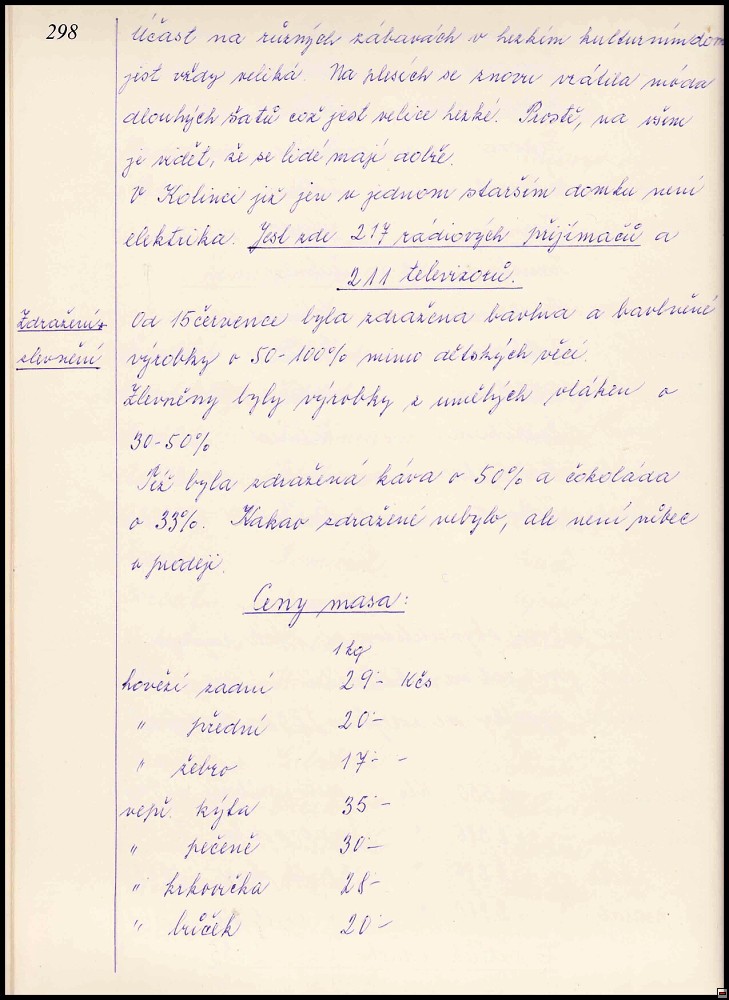 298
Účast na různých zábavách v hezkém kulturním dom
jest vždy veliká. Na plesích se znovu vrátila móda
dlouhých šatů což jest velice hezké. Prostě, na všem
je vidět, že se lidé mají dobře.
V Kolinci již jen v jednom starším domku není
elektrika. Jest zde 217 rádiových přijímačů a
211 televizorů.
Zdražení, Od 15 července byla zdražena bavlna a bavlněné
slevnění výrobky o 50-100% mimo dětských věcí.
Zlevněny byly výrobky z umělých vláken o
30-50%
Též byla zdražená káva o 50% a čokoláda
o 33%. Kakao zdražené nebylo, ale není vůbec
v prodeji.
Ceny masa:
1 kg
hovězí zadní 29·- Kčs
" přední 20·-
" žebro 17·- -
vepř. kýta 35·-
" pečeně 30·-
" krkovička 28-
" bůček 20·-